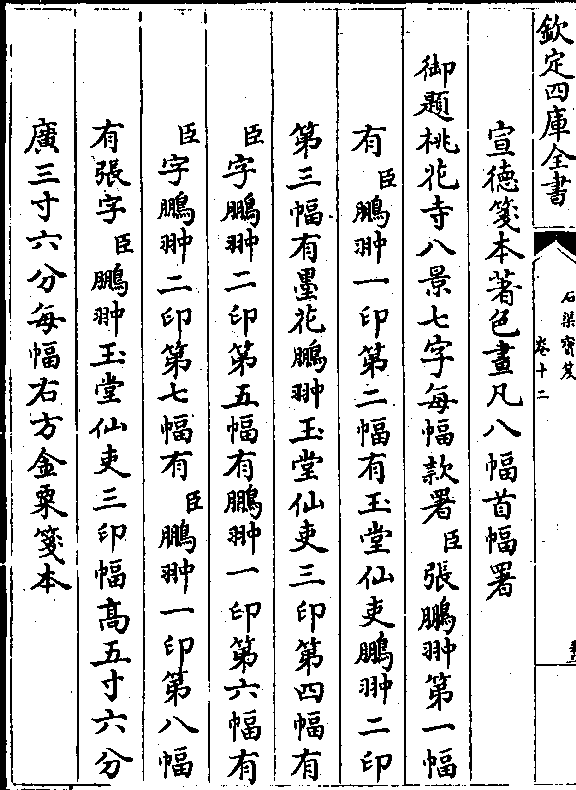 欽定四庫全書
石渠寶笈
卷十二
宣德箋本著色畫凡八幅首幅署
御題桃花寺八景七字每幅款署臣張鵬翀第一幅
有臣鵬翀一印第二幅有玉堂仙吏鵬翀二印
第三幅有墨花鵬翀玉堂仙吏三印第四幅有
臣字鵬翀二印第五幅有鵬翀一印第六幅有
臣字鵬翀二印第七幅有臣鵬翀一印第八幅
有張字臣鵬翀玉堂仙吏三印幅高五寸六分
廣三寸六分每幅右方金粟箋本